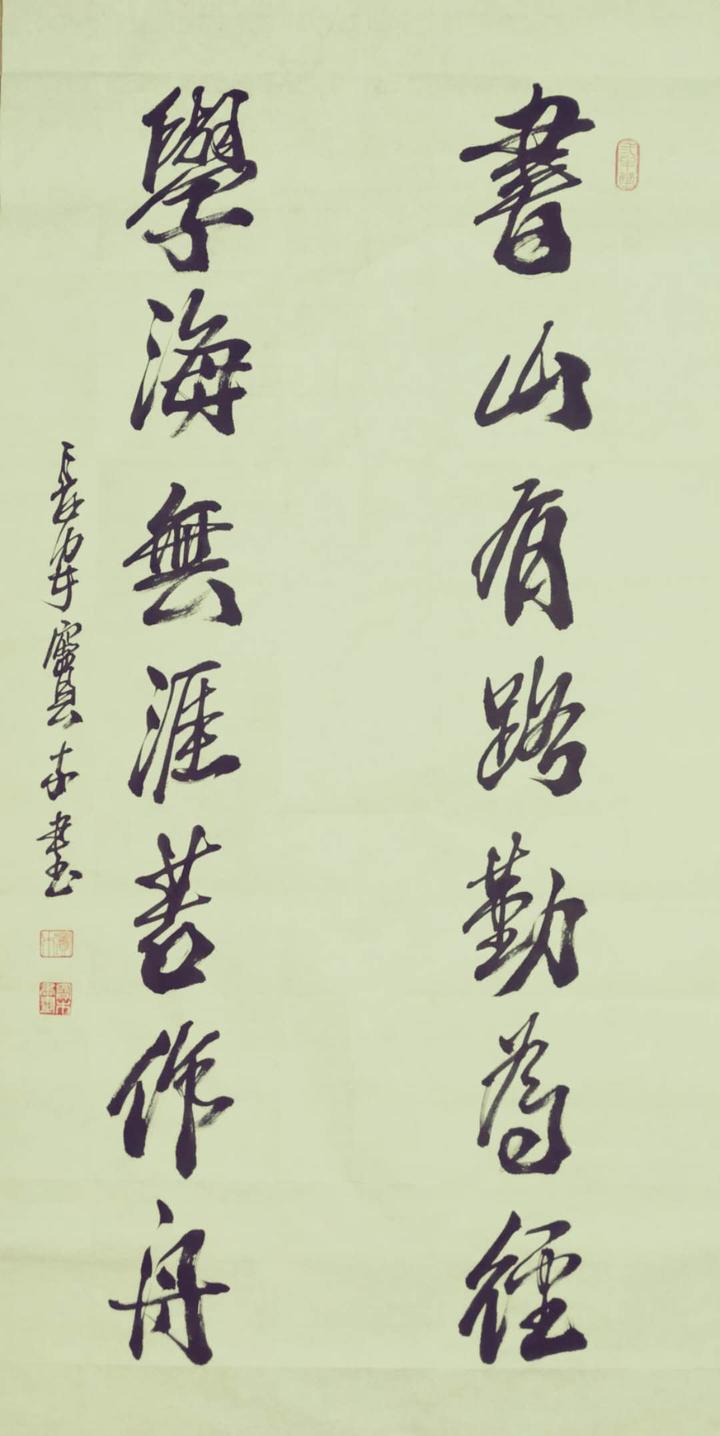 書山有路勤為徑
學海無涯苦作舟
書